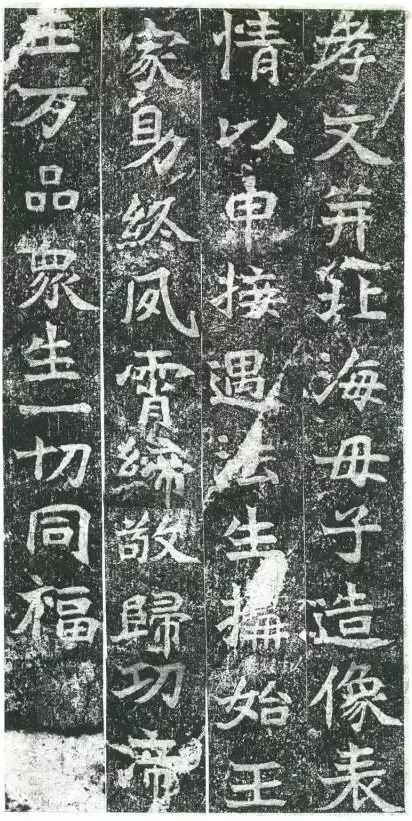 孝文并北海母子造像表
情以申接遇法生構始王
家助終夙霄締敬歸功帝
王万品眾生一切同福